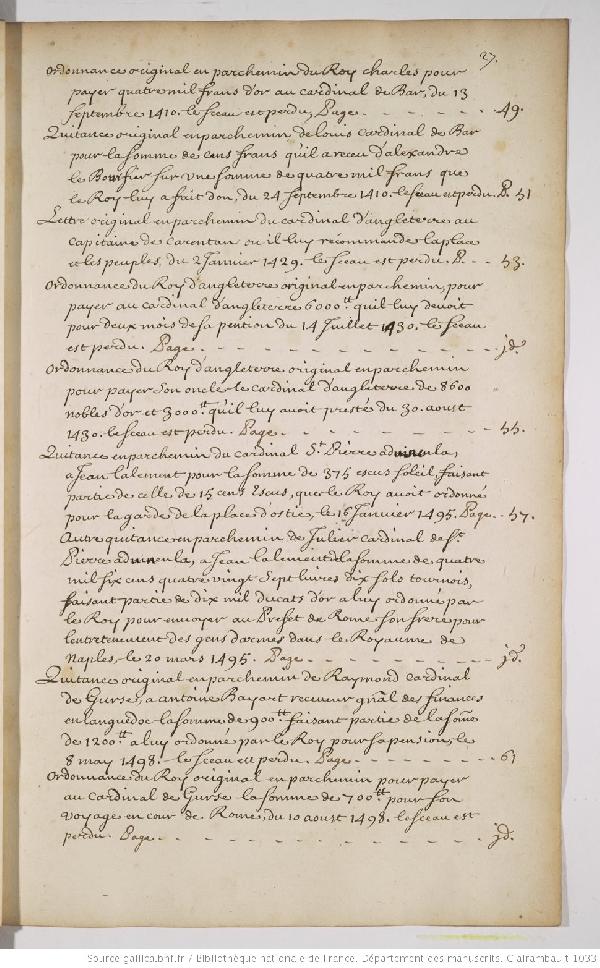 27.
Ordonnance original en parchemin du Roy charles pour
payer quatre mil frans d'or au cardinal de Bar, du 13
septembre 1410. le sceau est perdu, Page. - - - - - - 49.
Quitance original en parchemin de louis cardinal de Bar
pour la somme de cens frans qu'il a receu d'alexandre
le Boursier sur une somme de quatre mil frans que
le Roy luy a fait don, du 24 septembre 1410. le sceau est perdu. P. 51
Lettre original en parchemin du cardinal d'angleterre au
capitaine de Carentan ou il luy recommande la place
et les peuples, du 2 Janvier 1429. le sceau est perdu. P. - - 53.
Ordonnance du Roy d'angleterre original en parchemin, pour
payer au cardinal d'angleterre 6000tt quil luy devoit
pour deux mois de sa pention du 14 Juillet 1430. le sceau
est perdu. Page. - - - - - - - - - - jd.
Ordonnance du Roy d'angleterre original en parchemin
pour payer son oncle le cardinal d'angleterre de 8600
nobles d'or et 3000tt qu'il luy avoit presté du 30. aoust
1430. le sceau est perdu. Page. - - - - - - - 55.
Quitance en parchemin du cardinal St. Pierre advincula,
a Jean lalement pour la somme de 375 escus soleil, faisant
partie de celle de 15 cens Escus, que le Roy avoit ordonné
pour la garde de la place d'ostie, le 16 Janvier 1495. Page. - 57.
Autre quitance en parchemin de Julien cardinal de St.
Pierre advincula, a Jean lalement de la somme de quatre
mil six cens quatre vingt sept livres dix sols tournois,
faisant partie de dix mil ducats d'or a luy ordonné par
le Roy pour envoyer au Prefet de Rome son frere pour
l'entretenement des gens d'armes dans le Royaume de
Naples, le 20 mars 1495. Page. - - - - - - - jd.
Quitance original en parchemin de Raymond Cardinal
de Gurse, a antoine Bayart receveur gñal des finances
en languedoc la somme de 900tt faisant partie de la soñe
de 1200tt a luy ordonné par le Roy pour sa pension, le
8 may 1498. le sceau est perdu. Page. - - - - - - 61
Ordonnance du Roy original en parchemin pour payer
au cardinal de Gurse la somme de 700tt pour son
voyage en cour de Rome, du 10 aoust 1498. le sceau est
perdu. Page. - - - - - - - - - - jd.
Source gallica.bnf.fr / Bibliothèque nationale de France. Département des manuscrits. Clairambault 1033